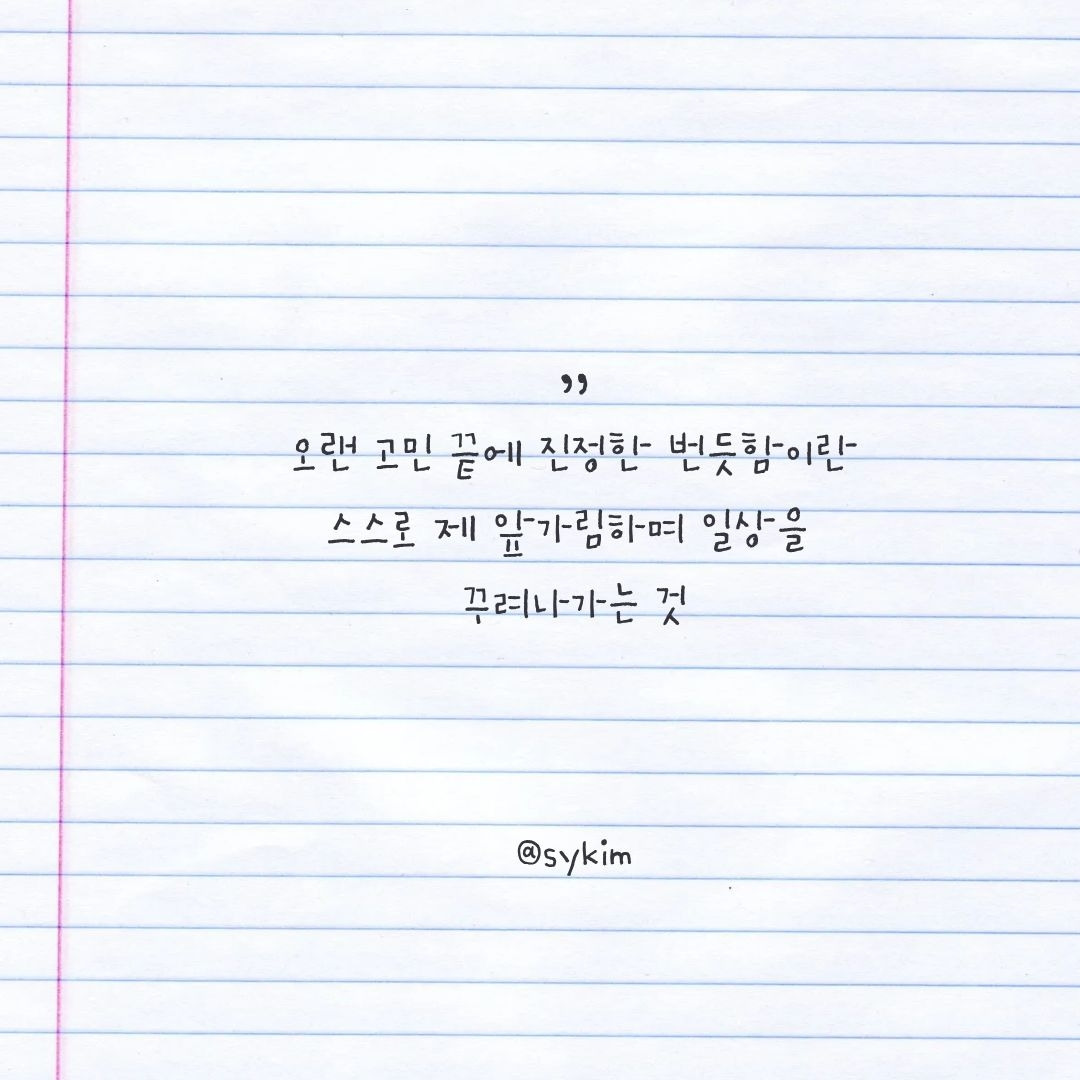 ”
오랜 고민 끝에 진정한 번듯함이란
스스로 제 앞가림하며 일상을
꾸려나가는 것
@sykim